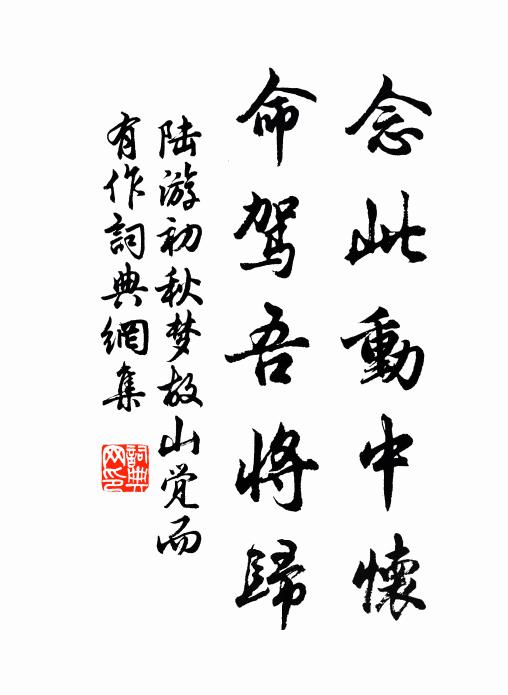 念此動中懷
命駕吾將歸
陆游初秋梦故山觉而
有作詞典網集
詞典
网印